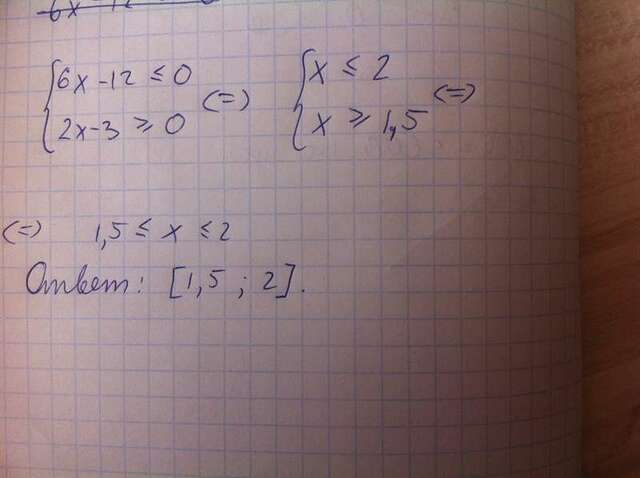 {6x-12 ≤ 0 (=) {x ≤ 2 (=)
2x-3 ≥ 0 x ≥ 1,5
(=) 1,5 ≤ x ≤ 2
Ответ: [1,5 ; 2].